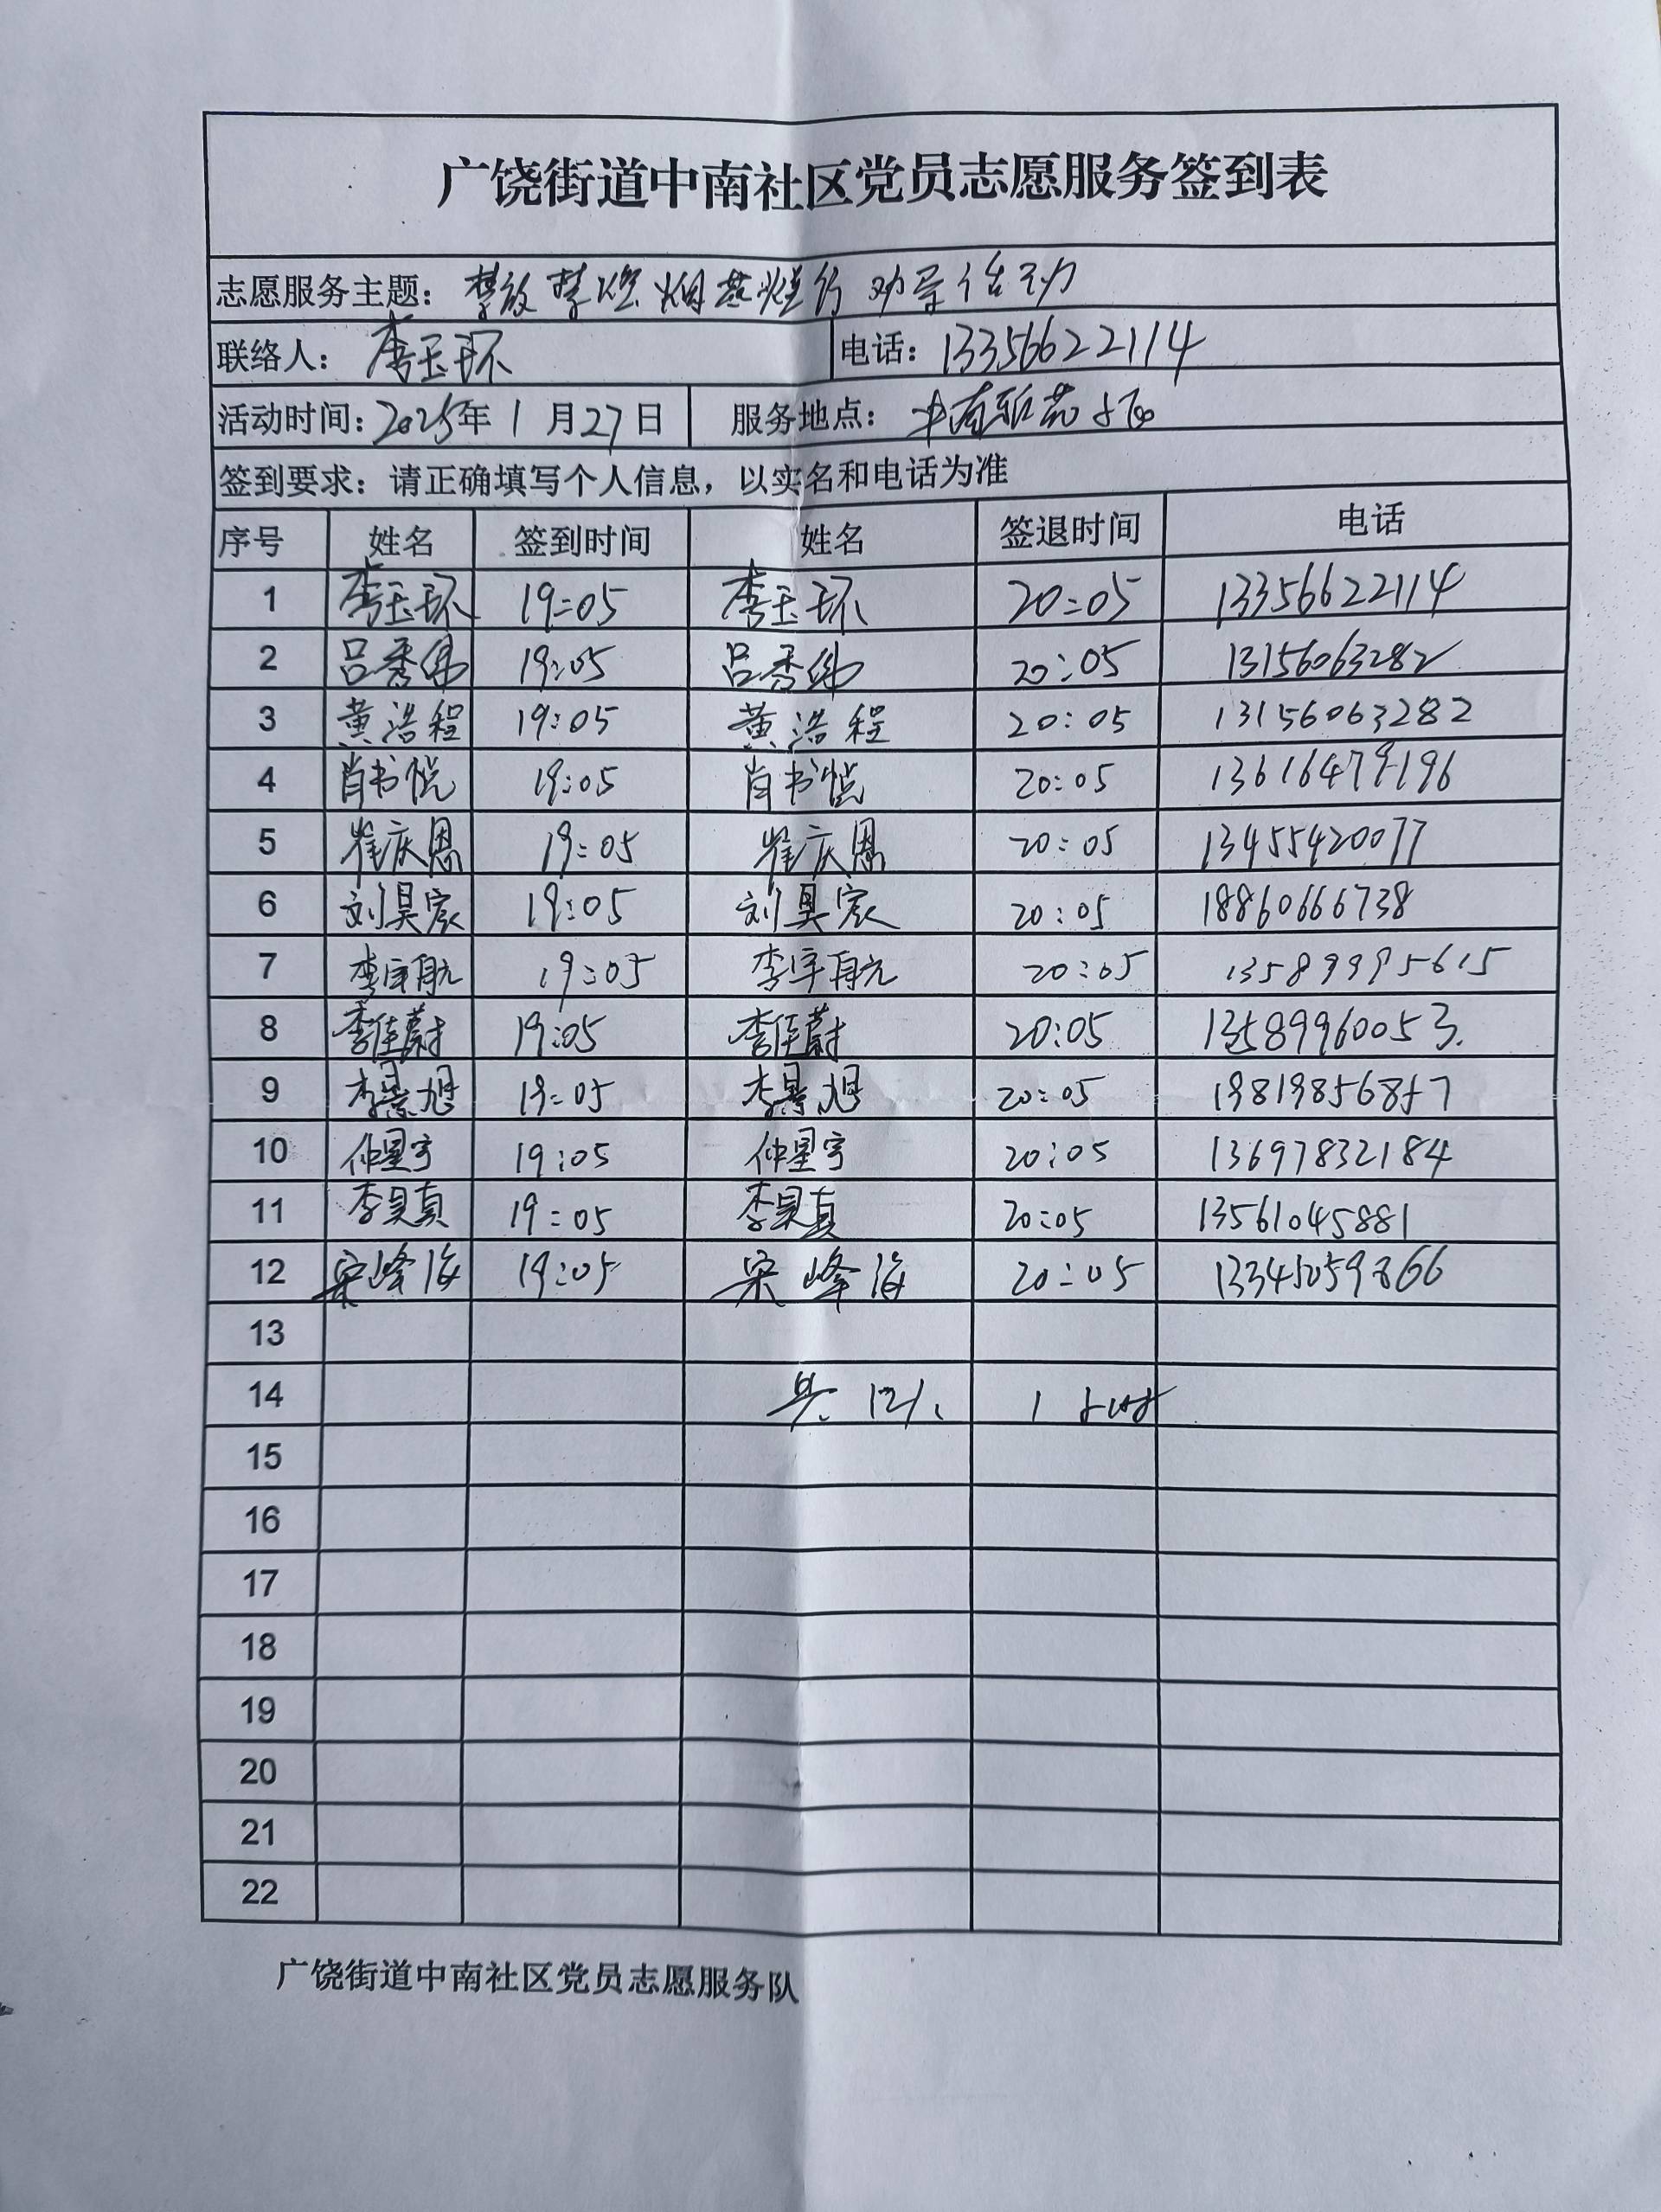 广饶街道中南社区党员志愿服务签到表
志愿服务主题：禁放禁燃烟花爆竹劝导活动
联络人：李玉环 电话：13356622114
活动时间：2025年1月27日 服务地点：中南 小区
签到要求：请正确填写个人信息，以实名和电话为准
序号 姓名 签到时间 姓名 签退时间 电话
1 李玉环 19:05 李玉环 20:05 13356622114
2 吕秀伟 19:05 吕秀伟 20:05 13156063282
3 黄浩程 19:05 黄浩程 20:05 13156063282
4 肖书悦 19:05 肖书悦 20:05 13616479196
5 崔庆恩 19:05 崔庆恩 20:05 13455420077
6 刘昊宸 19:05 刘昊宸 20:05 18860666738
7 李宇航 19:05 李宇航 20:05 13589995615
8 李佳蔚 19:05 李佳蔚 20:05 13589960053.
9 李景旭 19:05 李景旭 20:05 19819856857
10 仲星宇 19:05 仲星宇 20:05 13697832184
11 李昊真 19:05 李昊真 20:05 13561045881
12 宋峰海 19:05 宋峰海 20:05 13345059866
13
14 共12人 1小时
15
16
17
18
19
20
21
22
广饶街道中南社区党员志愿服务队